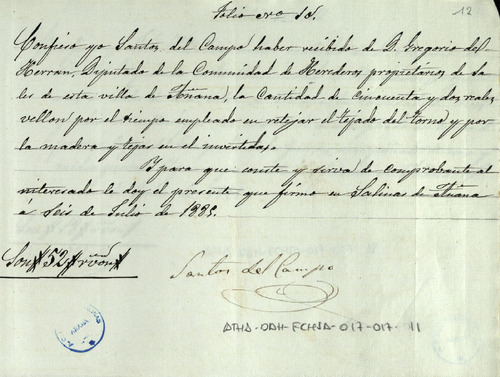 Folio nro 18.
12
Confieso yo Santos del Campo haber recibido de D. Gregorio del
Herran, Diputado de la Comunidad de Herederos propietarios de Sa
les de esta villa de Añana, la Cantidad de Cincuenta y dos reales
vellon por el tiempo empleado en retejar el tejado del torno y por
la madera y tejas en el invertidas.
Y para que conste y sirva de comprobante al
interesado le doy el presente que firmo en Salinas de Añana
á Seis de Julio de 1885.
Son # 52 # rs von #
Santos del Campo
ATHA-DAH-FCHSA-017-017-11